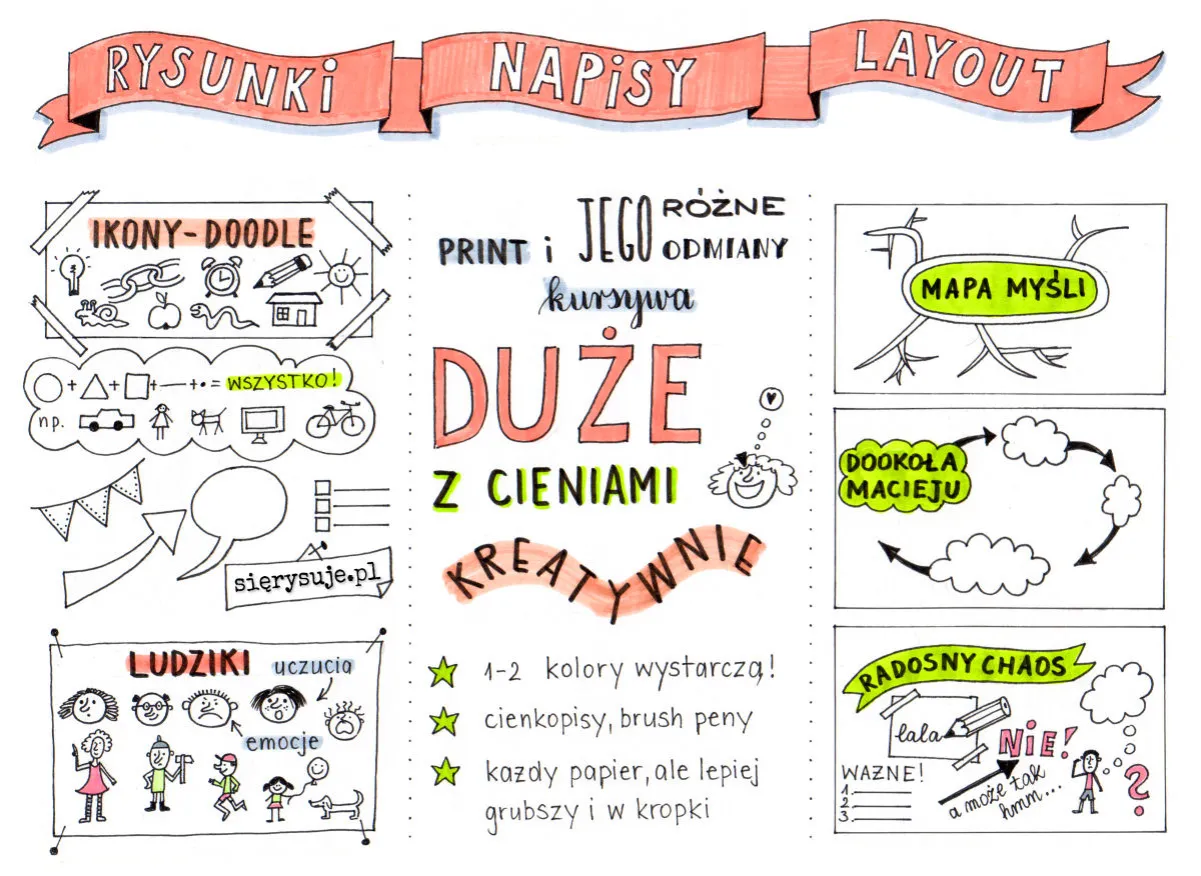 RYSUNKi
NAPiSY
LAYOUT
IKONY-DOODLE
○+△+□+—+•= WSZYSTKO!
np.
sięrysuje.pl
LUDZIKI uczucia
emocje
PRINT i JEGO RÓŻNE ODMIANY
kursywa
DUŻE
Z CIENIAMI
KREATYWNIE
1-2 kolory wystarczą!
cienkopisy, brush peny
każdy papier, ale lepiej
grubszy i w kropki
MAPA MYŚLI
DOOKOŁA
MACIEJU
RADOSNY CHAOS
lala
NiE!
WAŻNE!
1.
2.
3.
a może tak
hmm...
?